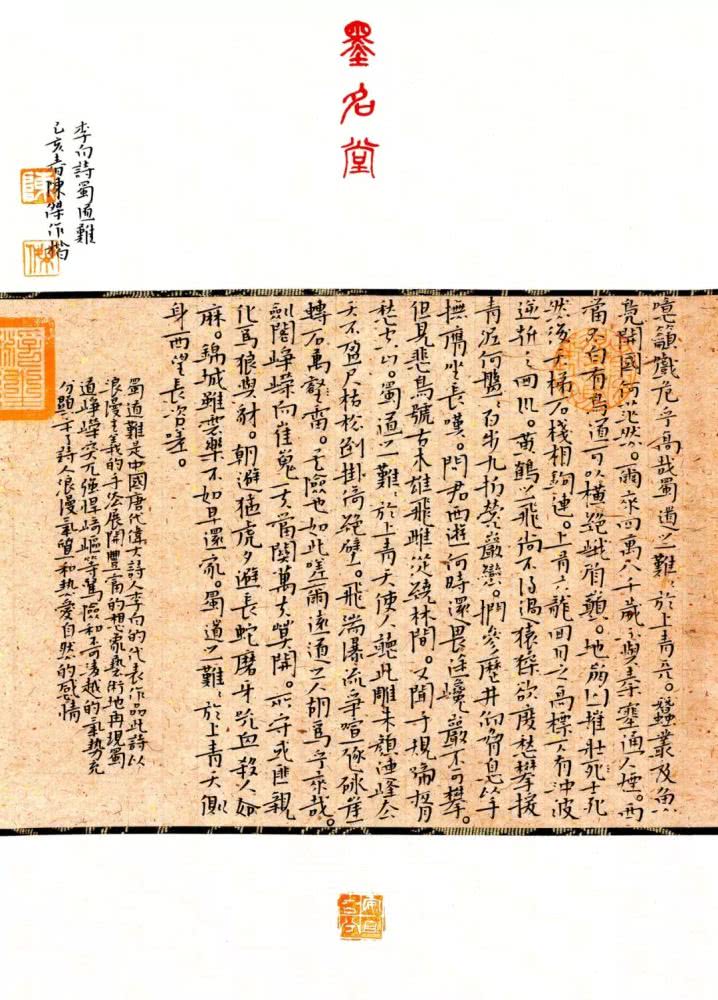 墨名堂
噫籲戲危乎高哉蜀道之難、於上青天。蠶叢及魚
鳧開國何茫然。爾來四萬八千歲不與秦塞通人煙。西
當太白有鳥道可以橫絕峨眉巔。地崩山摧壯士死
然後天梯石棧相鉤連。上有六龍回日之高標下有沖波
逆折之回川。黃鶴之飛尚不得過猿猱欲度愁攀援
青泥何盤、百步九折縈巖巒。捫參歷井仰脅息以手
撫膺坐長嘆。問君西遊何時還畏途巉巖不可攀。
但見悲鳥號古木雄飛雌從繞林間。又聞子規啼夜月
愁空山。蜀道之難、於上青天使人聽此雕朱顏連峰去
天不盈尺枯松倒掛倚絕壁。飛湍瀑流爭喧豗砯崖
轉石萬壑雷。其險也如此嗟爾遠道之人胡為乎來哉。
劍閣崢嶸而崔嵬一夫當關萬夫莫開。所守或匪親
化為狼與豺。朝避猛虎夕避長蛇磨牙吮血殺人如
麻。錦城雖雲樂不如早還家。蜀道之難、於上青天側
身西望長咨嗟。
蜀道難是中國唐代偉大詩人李白的代表作品此詩以
浪漫主義的手法展開豐富的想象藝術地再現蜀
道崢嶸突兀強悍崎嶇等驚險和不可凌越的氣勢充
分顯示了詩人浪漫氣質和熱愛自然的感情
李白詩蜀道難
己亥春陳傑作楷
陳
傑